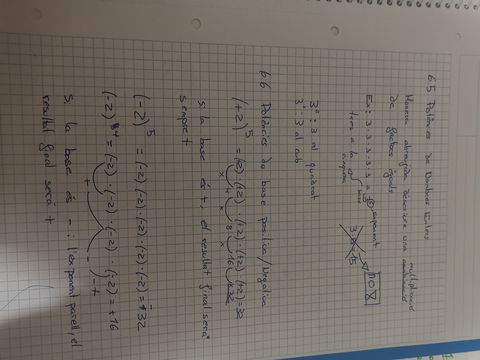 6.5 Potències de Nombres Enters
Manera abreujada d'escriure una multiplicació
de factors iguals
Ex: 3·3·3·3·3 = 3⁵ exponent
base
3·5=15 NO!!
3²: 3 al quadrat
3³: 3 al cub
6.6 Potències de base positiva/Negativa
(+2)⁵ = (+2)·(+2)·(+2)·(+2)·(+2)=32
4 8 16 +32
Si la base és +, el resultat final serà
sempre +
(-2)⁵ = (-2)·(-2)·(-2)·(-2)·(-2)=-32
(-2)⁴ = (-2)·(-2)·(-2)·(-2)=+16
+ -
Si la base és - i l'exponent parell, el
resultat final serà +